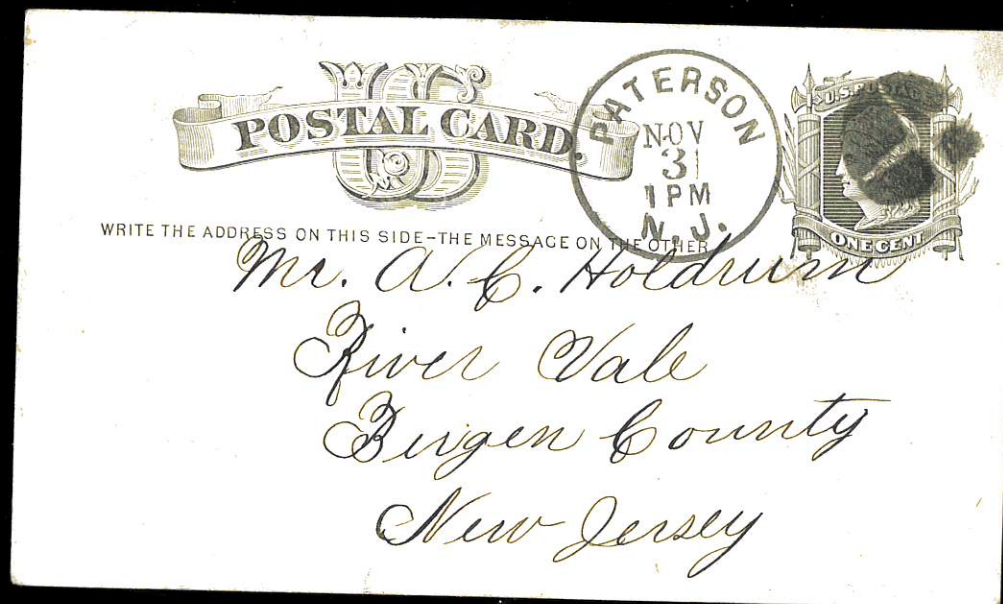 US
POSTAL CARD.
PATERSON
NOV
3
1 PM
N. J.
U.S. POSTAGE
ONE CENT
WRITE THE ADDRESS ON THIS SIDE-THE MESSAGE ON THE OTHER
Mr. A. C. Holdrum
River Vale
Bergen County
New Jersey